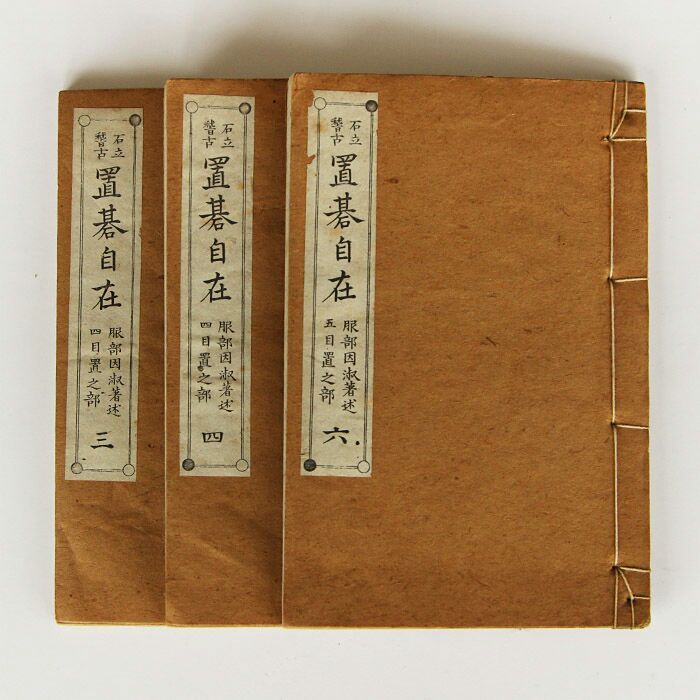 石立
稽古
置碁自在
服部因淑著述
四目置之部
三
石立
稽古
置碁自在
服部因淑著述
四目置之部
四
石立
稽古
置碁自在
服部因淑著述
五目置之部
六